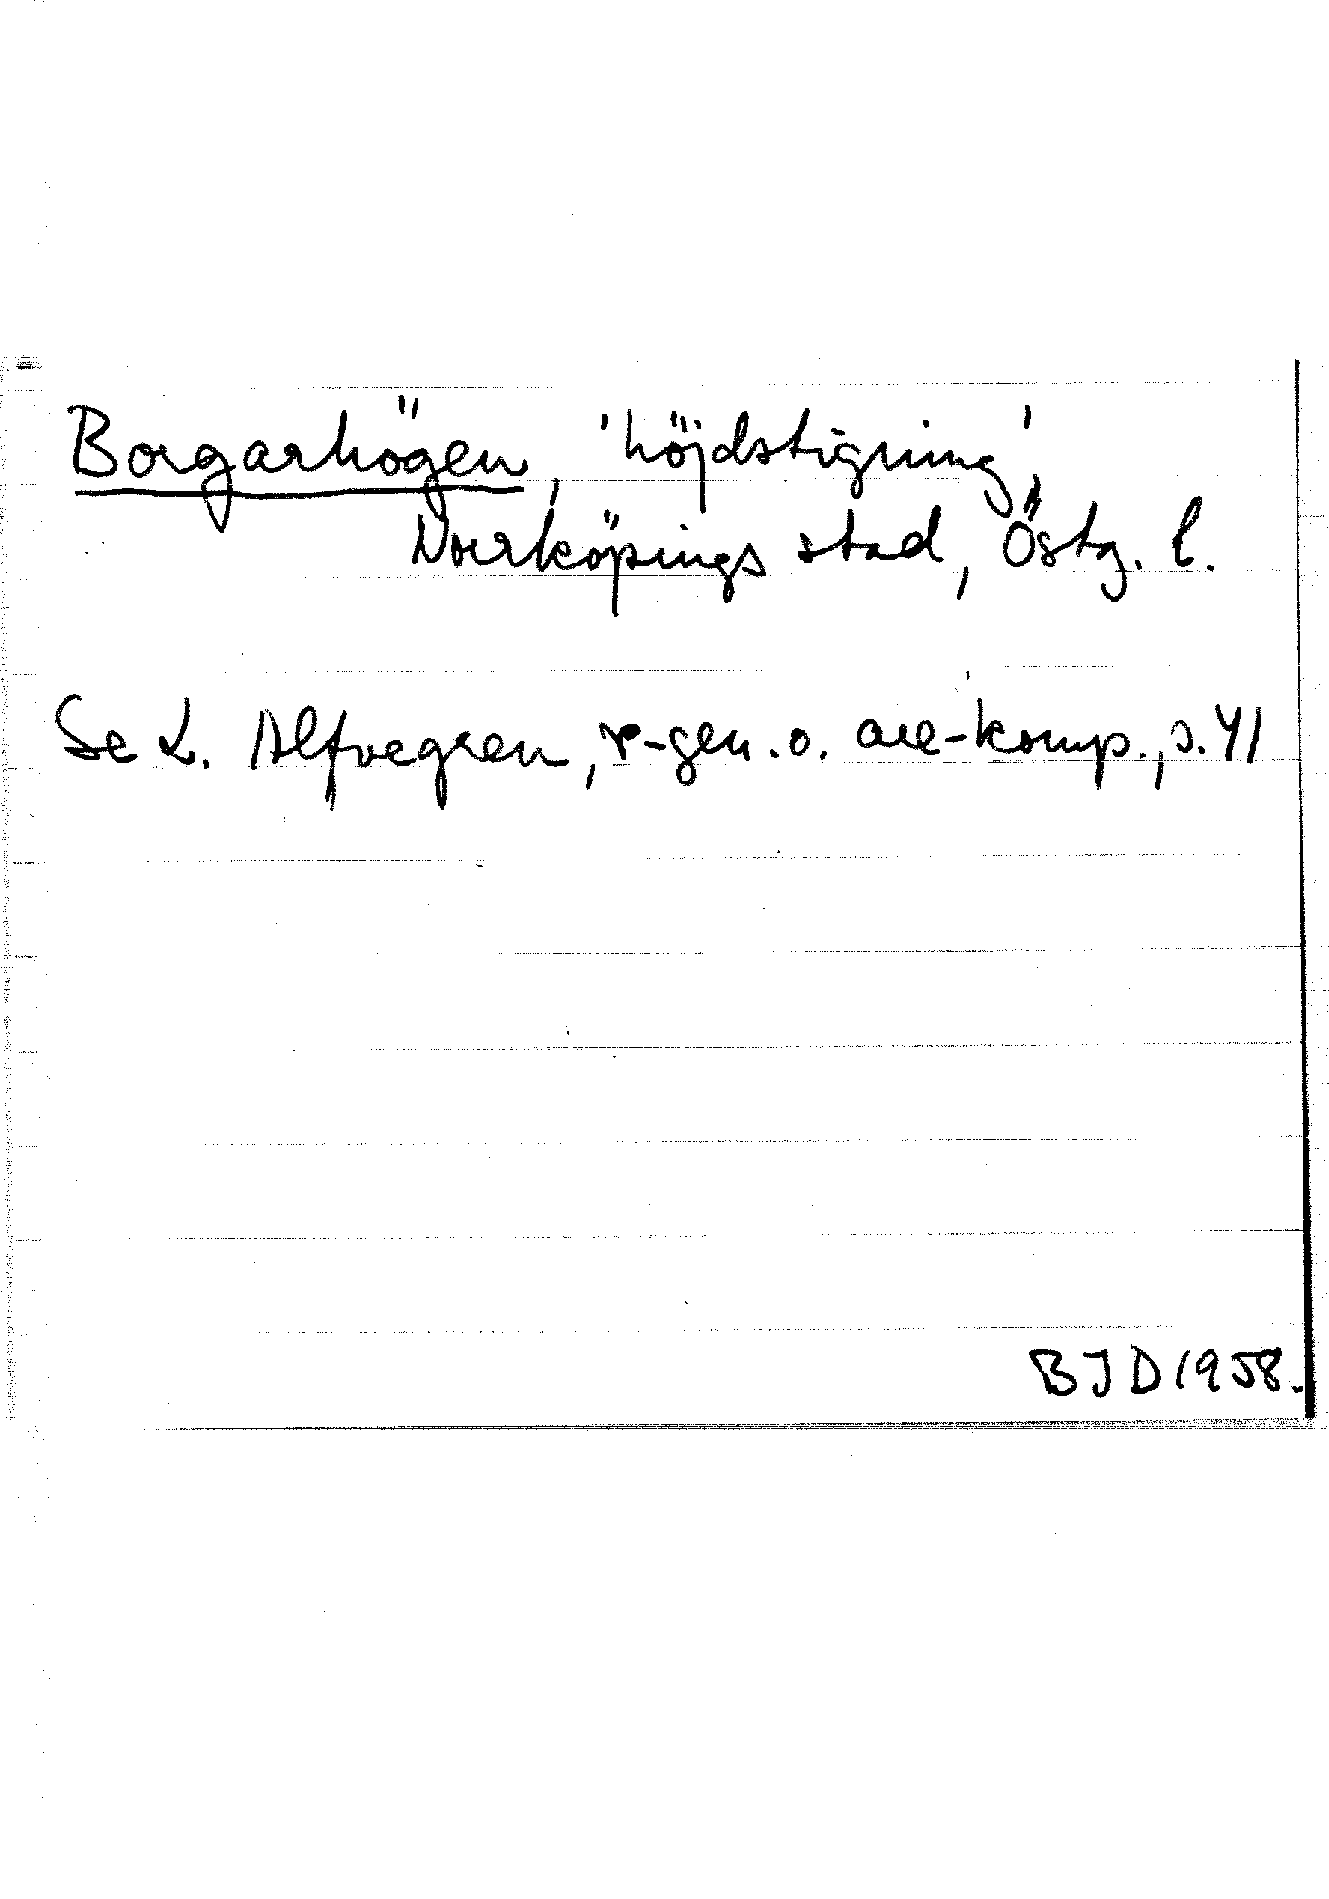 Borgarhögen, 'höjdstigning',
Norrköpings stad, Östg. l.
Se L. Alfvegren, r-gen. o. are-komp., s. 41
BJD 1958.